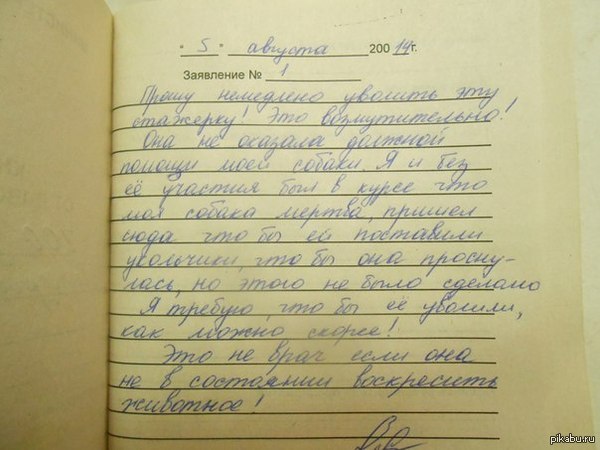 " 5 " августа 200 14 г.
Заявление № 1
Прошу немедлено уволить эту
стажерку! Это возмутительно!
Она не оказала должной
помощи моей собаки. Я и без
её участия был в курсе что
моя собака мертва, пришел
сюда что бы ей поставили
укольчики, что бы она просну-
лась, но этого не было сделано
Я требую, что бы её уволили,
как можно скорее!
Это не врач если она
не в состоянии воскресить
животное!
pikabu.ru